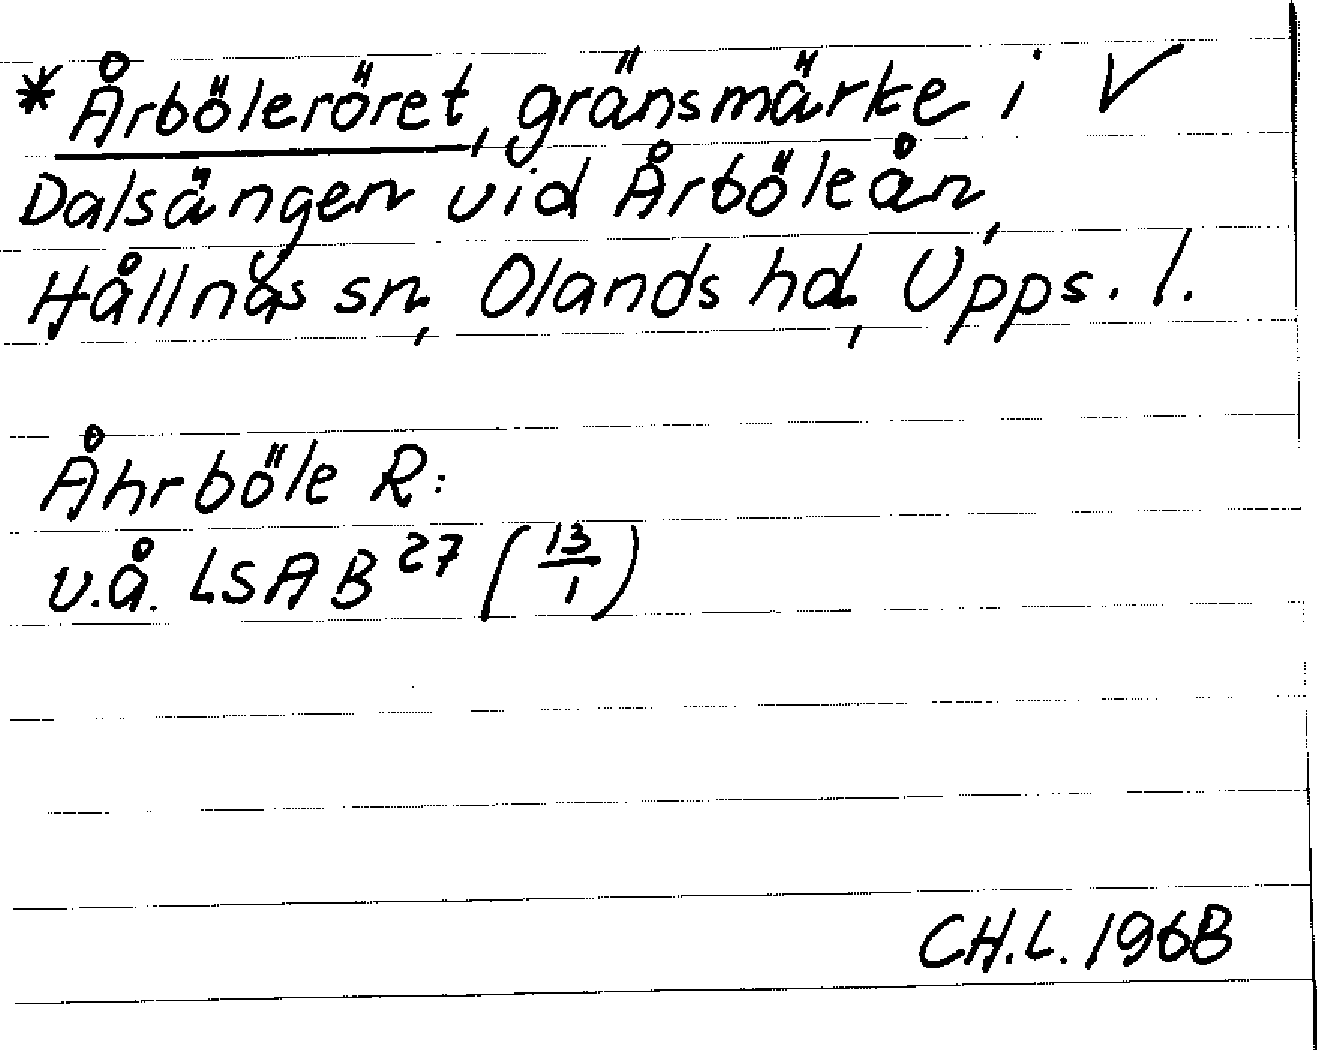 *Årböleröret, gränsmärke i V
Dalsängen vid Årböleån,
Hållnäs sn, Olands hd, Upps. l.
Åhrböle R:
v.å. LSA B 27 (13/1)
CH.L. 1968